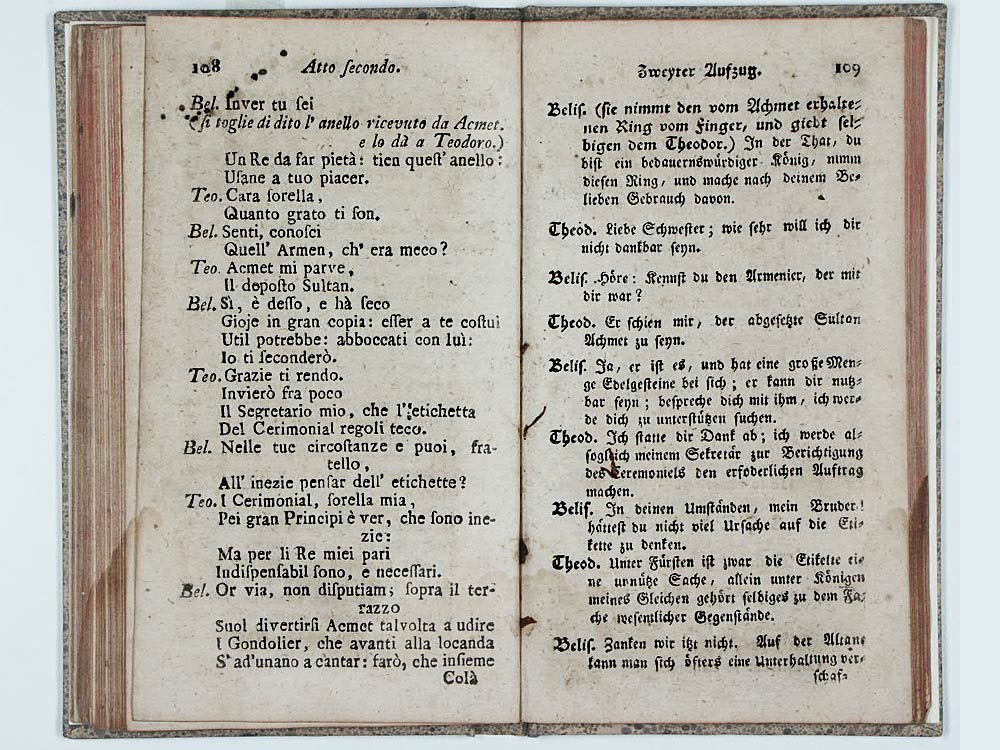 108 Atto ſecondo.
Bel. Inver tu ſei
(ſi toglie di dito l' anello ricevuto da Acmet.
e lo dà a Teodoro.)
Un Re da far pietà: tien queſt' anello:
Uſane a tuo piacer.
Teo. Cara ſorella,
Quanto grato ti ſon.
Bel. Senti, conoſci
Quell' Armen, ch' era meco?
Teo. Acmet mi parve,
Il depoſto Sultan.
Bel. Sì, è deſſo, e hà ſeco
Gioje in gran copia: eſſer a te coſtui
Util potrebbe: abboccati con luì:
Io ti ſeconderò.
Teo. Grazie ti rendo.
Invierò fra poco
Il Segretario mio, che l' etichetta
Del Cerimonial regoli teco.
Bel. Nelle tue circoſtanze e puoi, fra-
tello,
All' inezie penſar dell' etichette?
Teo. I Cerimonial, ſorella mia,
Pei gran Principi è ver, che ſono ine-
zie:
Ma per li Re miei pari
Indiſpenſabil ſono, e neceſſari.
Bel. Or via, non diſputiam; ſopra il ter-
razzo
Suol divertirſi Acmet talvolta a udire
I Gondolier, che avanti alla locanda
S' ad'unano a cantar: farò, che inſieme
Colà
Zweyter Aufzug. 109
Beliſ. (ſie nimmt den vom Achmet erhalte-
nen Ring vom Finger, und giebt ſel-
bigen dem Theodor.) In der That, du
biſt ein bedauernswürdiger König, nimm
dieſen Ring, und mache nach deinem Be-
lieben Gebrauch davon.
Theod. Liebe Schweſter; wie ſehr will ich dir
nicht dankbar ſeyn.
Beliſ. Höre: Kennſt du den Armenier, der mit
dir war?
Theod. Er ſchien mir, der abgeſetzte Sultan
Achmet zu ſeyn.
Beliſ. Ja, er iſt es, und hat eine große Men-
ge Edelgeſteine bei ſich; er kann dir nutz-
bar ſeyn; beſpreche dich mit ihm, ich wer-
de dich zu unterſtützen ſuchen.
Theod. Ich ſtatte dir Dank ab; ich werde al-
ſogleich meinem Sekretär zur Berichtigung
des Ceremoniels den erfoderlichen Auftrag
machen.
Beliſ. In deinen Umſtänden, mein Bruder!
hätteſt du nicht viel Urſache auf die Eti-
kette zu denken.
Theod. Unter Fürſten iſt zwar die Etikette ei-
ne unnütze Sache, allein unter Königen
meines Gleichen gehört ſelbiges zu dem Fa-
che weſentlicher Gegenſtände.
Beliſ. Zanken wir itzt nicht. Auf der Altane
kann man ſich öfters eine Unterhaltung ver-
ſchaf-